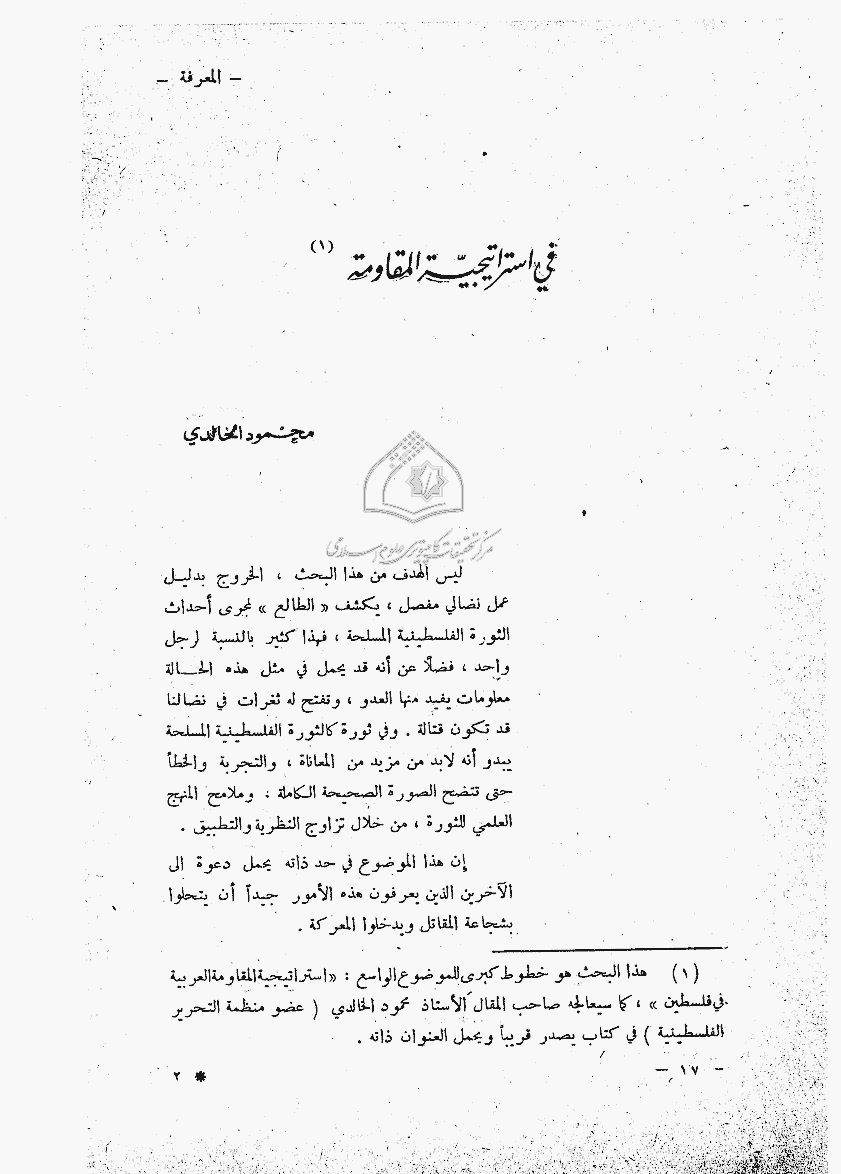 – المعرفة –
في استراتيجيّة المقاومة (١)
محمود الخالدي
مركز تحقيقات كامپيوترى علوم اسلامى
ليس الهدف من هذا البحث ، الخروج بدليل
عمل نضالي مفصل ، يكشف « الطالع » لمجرى أحداث
الثورة الفلسطينية المسلحة ، فهذا كثير بالنسبة لرجل
واحد ، فضلاً عن أنه قد يحمل في مثل هذه الحالة
معلومات يفيد منها العدو ، وتفتح له ثغرات في نضالنا
قد تكون قتالة . وفي ثورة كالثورة الفلسطينية المسلحة
يبدو أنه لابد من مزيد من المعاناة ، والتجربة والخطأ
حتى تتضح الصورة الصحيحة الكاملة ، وملامح المنهج
العلمي للثورة ، من خلال تزاوج النظرية والتطبيق .
إن هذا الموضوع في حد ذاته يحمل دعوة الى
الآخرين الذين يعرفون هذه الأمور جيداً أن يتحلوا
بشجاعة المقاتل ويدخلوا المعركة .
(١) هذا البحث هو خطوط كبرى للموضوع الواسع : « استراتيجية المقاومة العربية
في فلسطين » ، كما سيعالجه صاحب المقال الأستاذ محمود الخالدي ( عضو منظمة التحرير
الفلسطينية ) في كتاب يصدر قريباً ويحمل العنوان ذاته .
– ١٧ –
* ٢